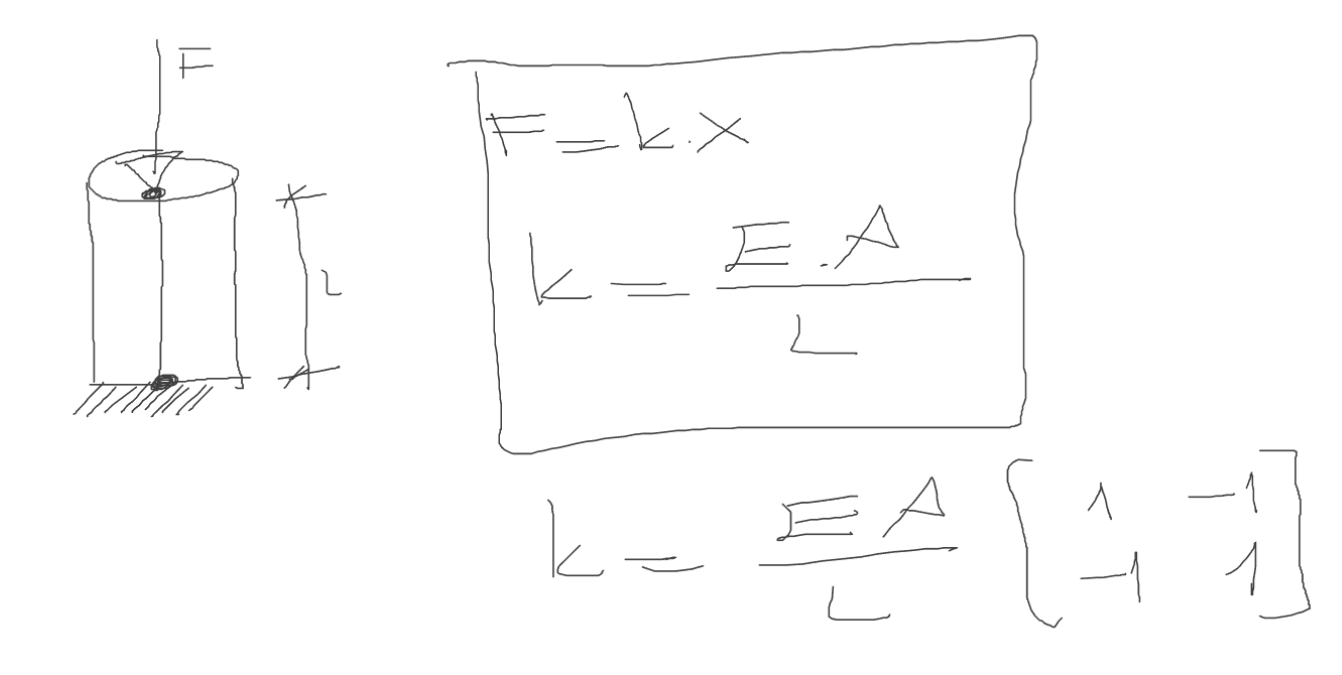 F
L
F = k.x
k = E.A
L
k = EA [1 -1
L -1 1]